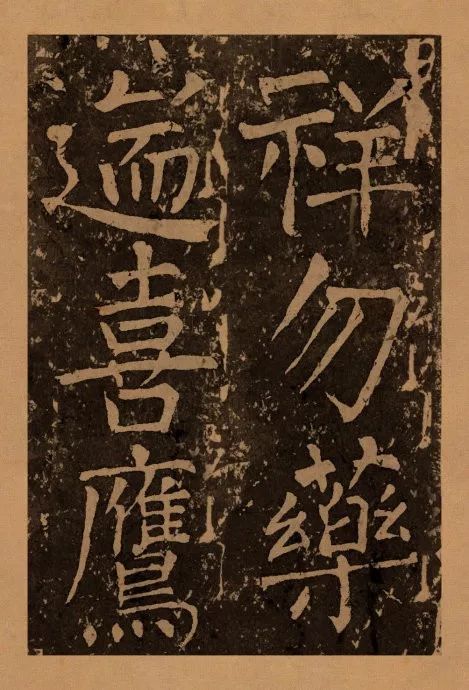 祥勿藥
遄喜鷹